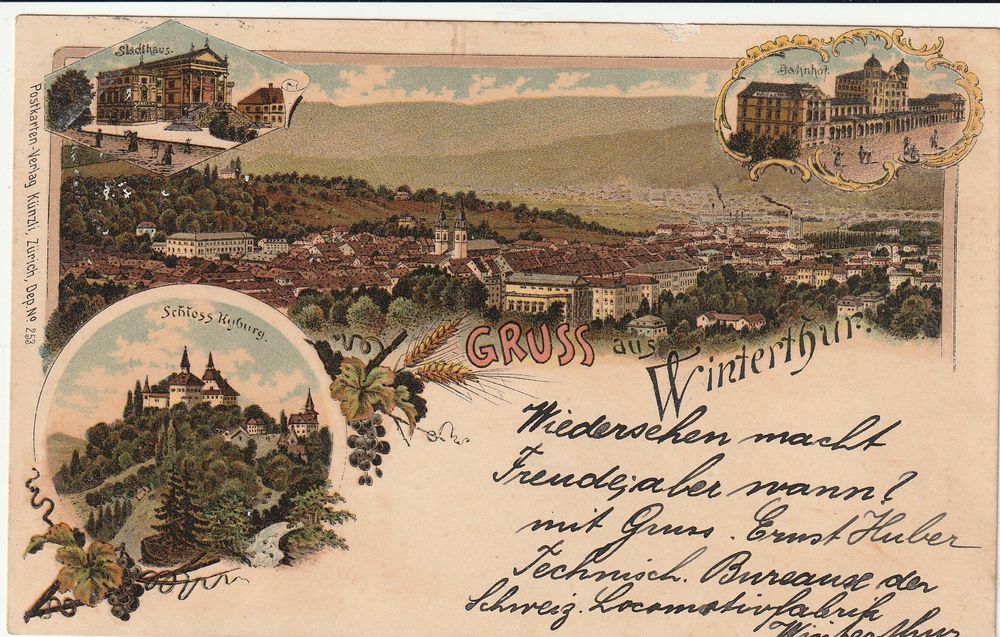 Stadthaus.
Bahnhof.
Postkarten-Verlag Künzli, Zürich, Dep. No 253
Schloss Kyburg.
GRUSS aus Winterthur.
Wiedersehen macht
Freude; aber wann?
mit Gruss. Ernst Huber
Technisch. Bureaux der
Schweiz. Locomotivfabrik
Winterthur